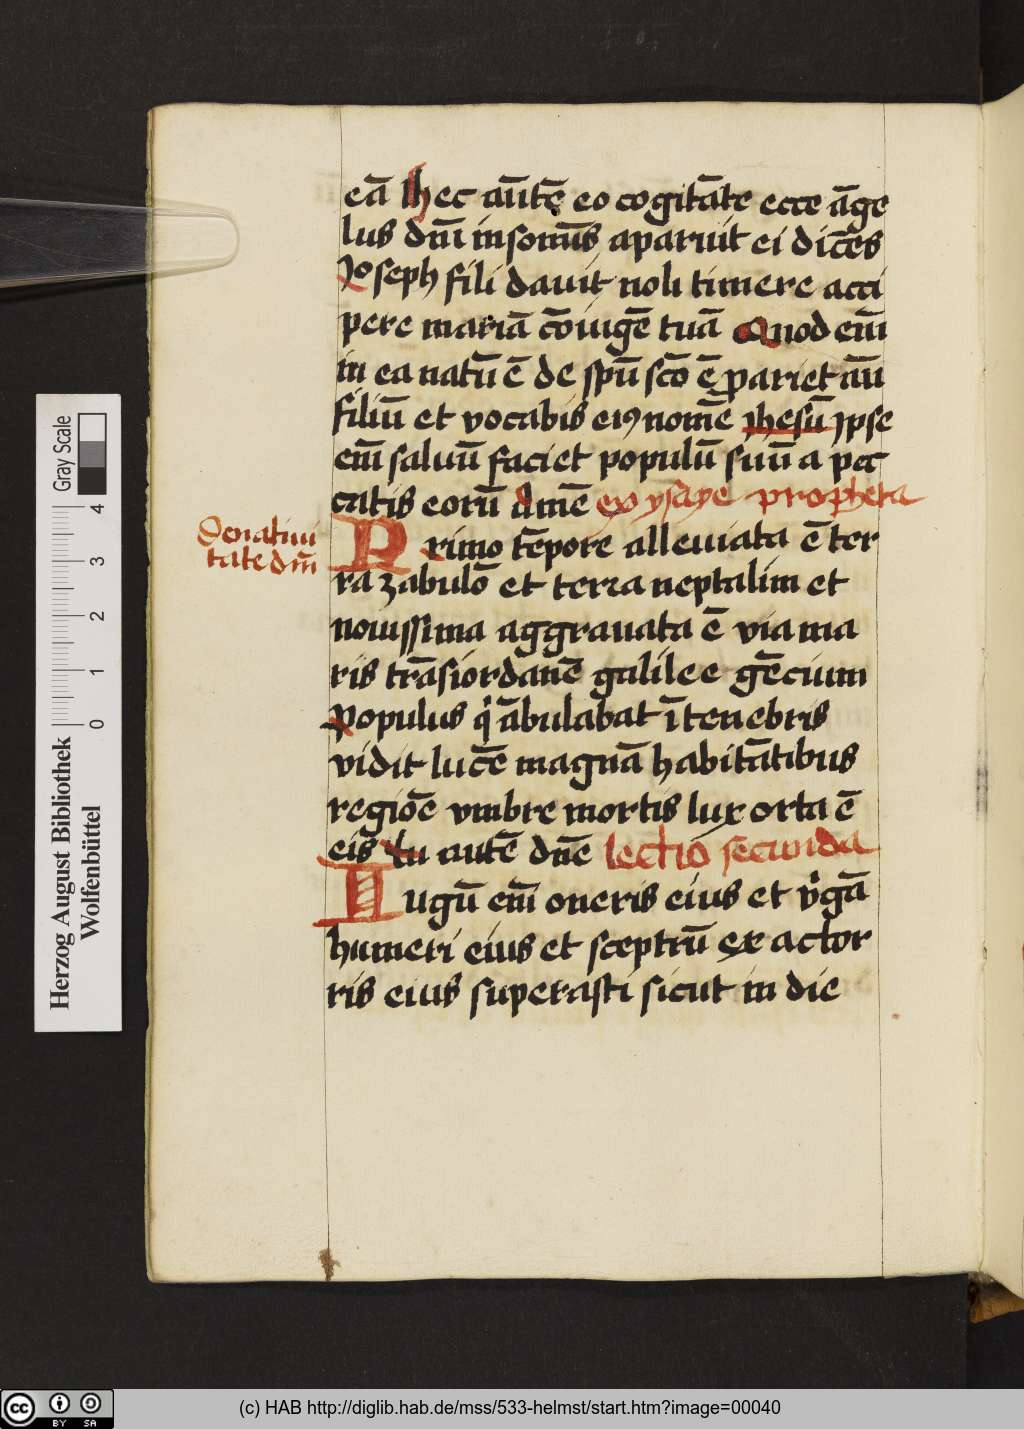 eā hec aūtē eo cogitāte ecce āge
lus dn̄i in somn̄is aparuit ei dicēs
Joseph fili dauit noli timere acci
pere mariā cōiugē tuā Quod em̄
in ea natū ē de spū scō ē pariet aū
filiū et vocabis eiꝯ nomē jhesū Jpse
em̄ saluū faciet populū suū a pec
catis eorū Amē ex ysaye propheta
De natiui
tate dn̄i
Primo tēpore alleuiata ē ter
ra zabulō et terra neptalim et
nouissima aggrauata ē via ma
ris trāsiordanē galilee gēcium
Populus q̇ ābulabat ī tenebris
vidit lucē magnā habitātibus
regiōe vmbre mortis lux orta ē
eis Tu autē dn̄e lectio secunda
Iugū em̄ oneris eius et v̇gā
humeri eius et sceptrū ex actor
ris eius superasti sicut in die
Herzog August Bibliothek
Wolfenbüttel
Gray Scale
0 1 2 3 4
cc BY SA
(c) HAB http://diglib.hab.de/mss/533-helmst/start.htm?image=00040